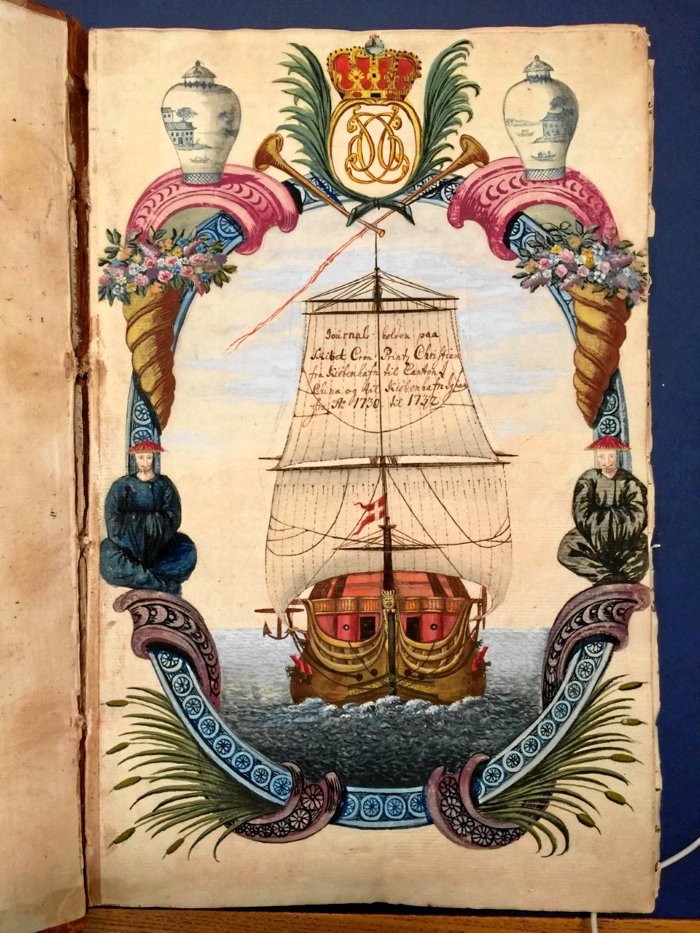 Journal holden paa
Skibet Cron Printz Christian
fra Kiøbenhafn til Canton i
China og til Kiøbenhafn Igien
fra Aº 1730 til 1732